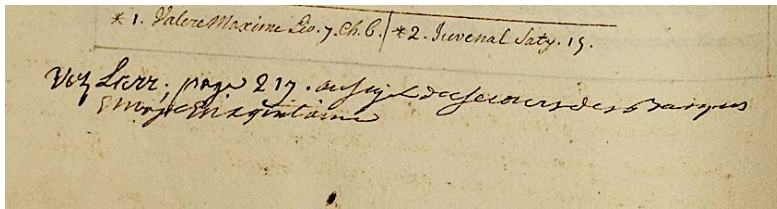 *1. Valere Maxime Liv. 7. Ch. 6. *2. Juvenal Saty. 15.
Voy page 217. au sujet du secours des Basques